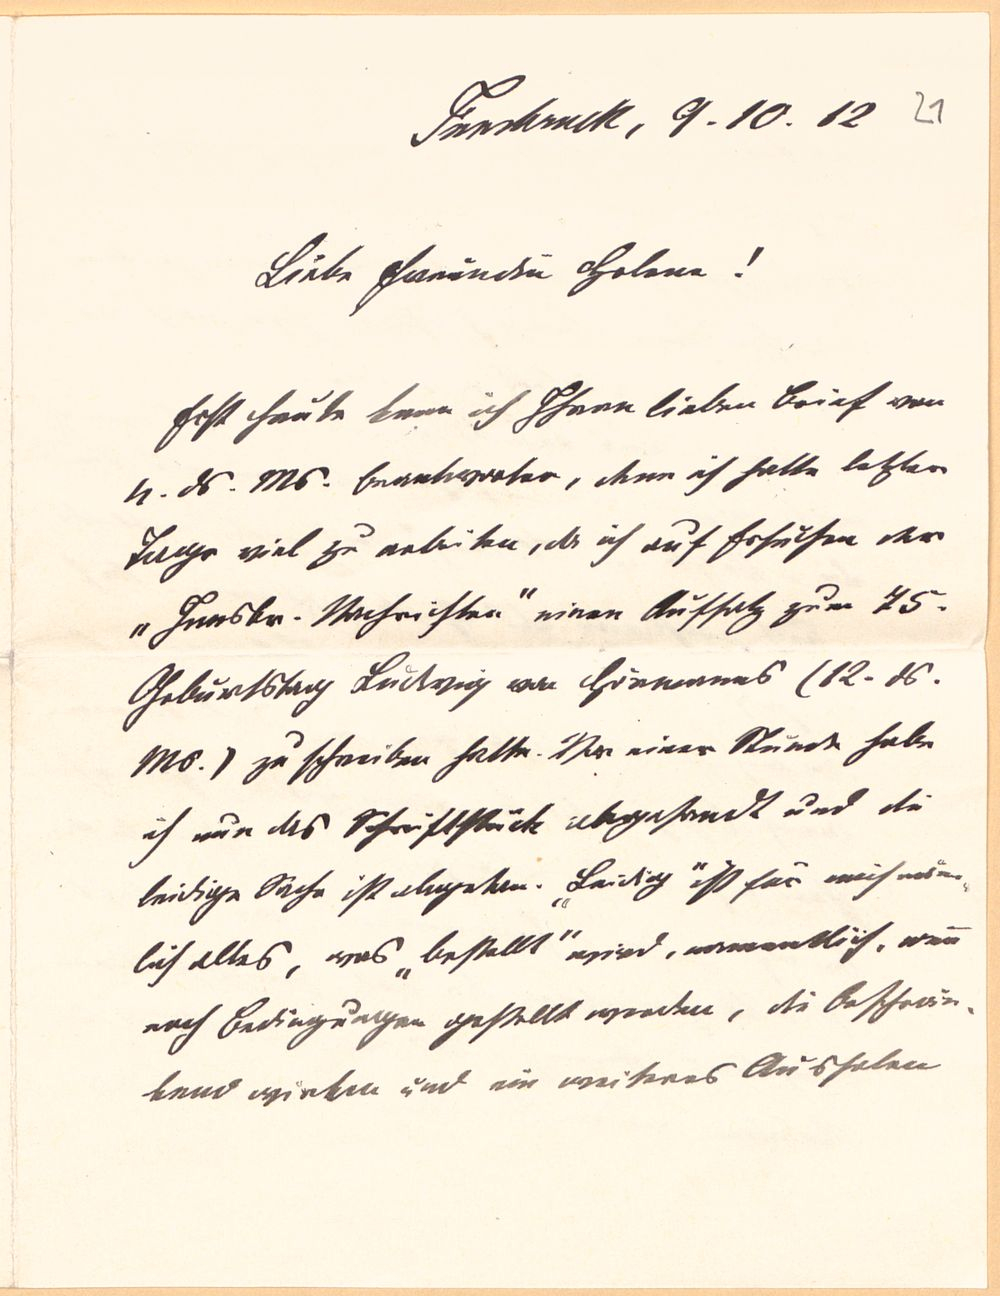 Innsbruck, 9. 10. 12
21
Liebe Freundin Helene!
Erst heute kann ich Ihren lieben Brief vom
4. ds. Ms. beantworten, denn ich hatte letzter
Tage viel zu arbeiten, da ich auf Ersuchen der
„Innsbr. Nachrichten" einen Aufsatz zum 75.
Geburtstag Ludwig von Hörmanns (12. ds.
Ms.) zu schreiben hatte. Vor einer Stunde habe
ich nun das Schriftstück abgesandt und die
leidige Sache ist abgetan. „Leidig" ist für mich näm-
lich alles, was „bestellt" wird, namentlich, wenn
noch Bedingungen gestellt werden, die beschrän-
kend wirken und ein weiteres Ausholen